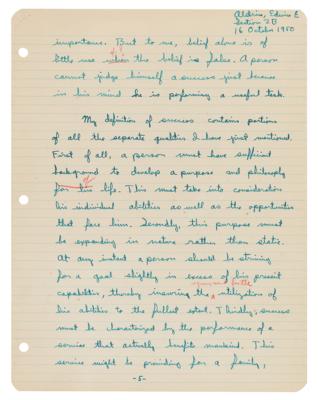 Aldrin, Edwin E
Section 2B
16 October 1950
importance. But to me, belief alone is of
little use when the belief is false. A person
if
cannot judge himself a success just because
in his mind he is performing a useful task.
My definition of success contains portions
of all the separate qualities I have just mentioned.
First of all, a person must have sufficient
background to develop a purpose and philosophy
of
for his life. This must take into consideration
his individual abilities as well as the opportunities
that face him. Secondly, this purpose must
be expanding in nature rather than static.
At any instant a person should be striving
for a goal slightly in excess of his present
capabilities, thereby insuring the utilization of
his abilities to the fullest extent. Thirdly, success
must be characterized by the performance of a
service that actually benefits mankind. This
service might be providing for a family,
-5-